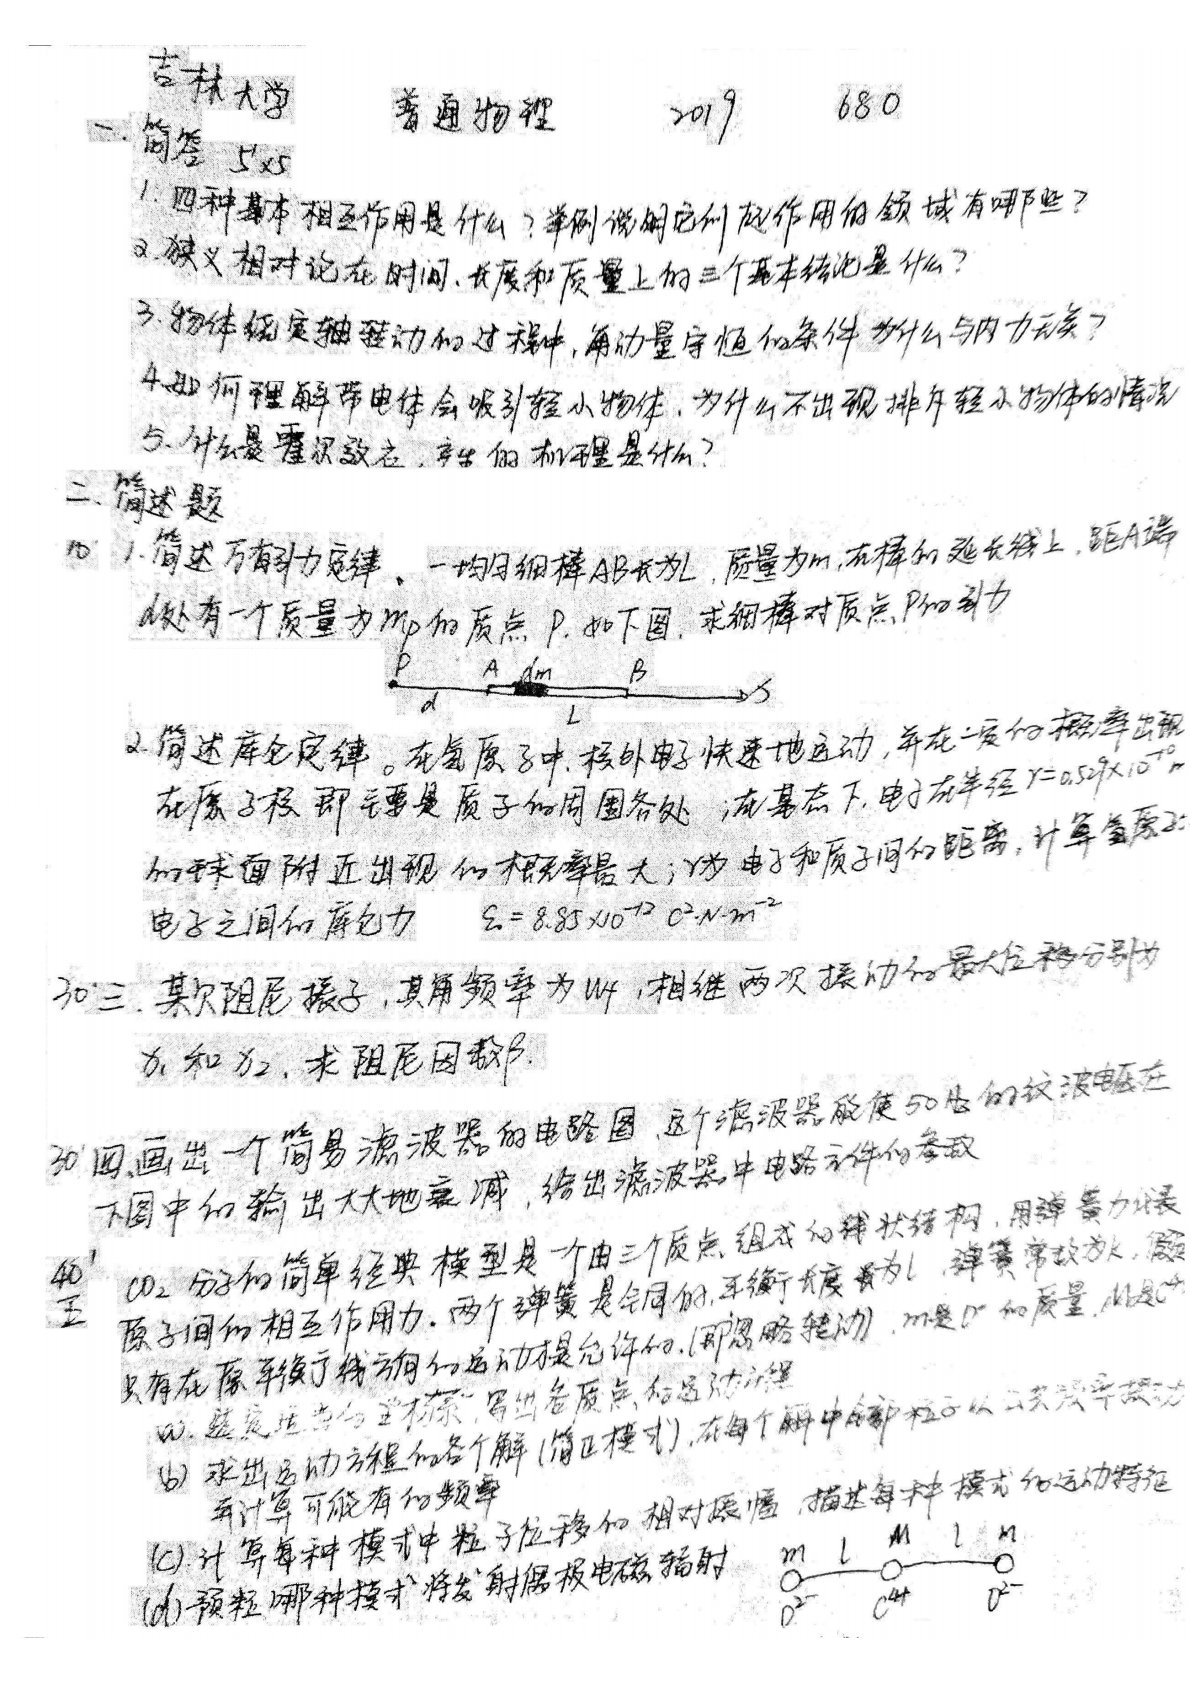 吉林大学 普通物理 2019 680
一. 简答 5'×5
1. 四种基本相互作用是什么？举例说明它们起作用的领域有哪些？
2. 狭义相对论在时间、长度和质量上的三个基本结论是什么？
3. 物体绕定轴转动的过程中，角动量守恒的条件为什么与内力无关？
4. 如何理解带电体会吸引轻小物体，为什么不出现排斥轻小物体的情况
5. 什么是霍尔效应，产生的机理是什么？
二. 简述题
10' 1. 简述万有引力定律。一均匀细棒AB长为L，质量为m，在棒的延长线上，距A端
d处有一个质量为mp的质点P. 如下图，求细棒对质点P的引力
P A dm B x
d L
2. 简述库仑定律。在氢原子中，核外电子快速地运动，并在一定的概率出现
在原子核即主要是质子的周围各处；在基态下，电子在半径r=0.529×10⁻¹⁰m
的球面附近出现的概率最大；r为电子和质子间的距离，计算氢原子
电子之间的库仑力 ε₀=8.85×10⁻¹² C²·N·m⁻²
30' 三. 某欠阻尼振子，其角频率为ωf，相继两次振动的最大位移分别为
x₁和x₂，求阻尼因数β.
30' 四. 画出一个简易滤波器的电路图，这个滤波器能使50Hz的纹波电压在
下图中的输出大大地衰减，给出滤波器中电路元件的参数
40' 五 CO₂分子的简单经典模型是一个由三个质点组成的线状结构，用弹簧力代表
原子间的相互作用力. 两个弹簧是全同的，平衡长度为l，弹簧常数为K，假定
只有在原平衡了线方向的运动才是允许的.(即忽略转动)，m是O²⁻的质量，M是C⁴⁺
(a). 选定适当的坐标系，写出各质点的运动方程
(b) 求出运动方程的各个解(简正模式)，在每个解中全部粒子以公共频率振动
并计算可能有的频率
(c). 计算每种模式中粒子位移的相对振幅，描述每种模式的运动特征
(d) 预粒哪种模式将发射偶极电磁辐射
m l M l m
O²⁻ C⁴⁺ O²⁻